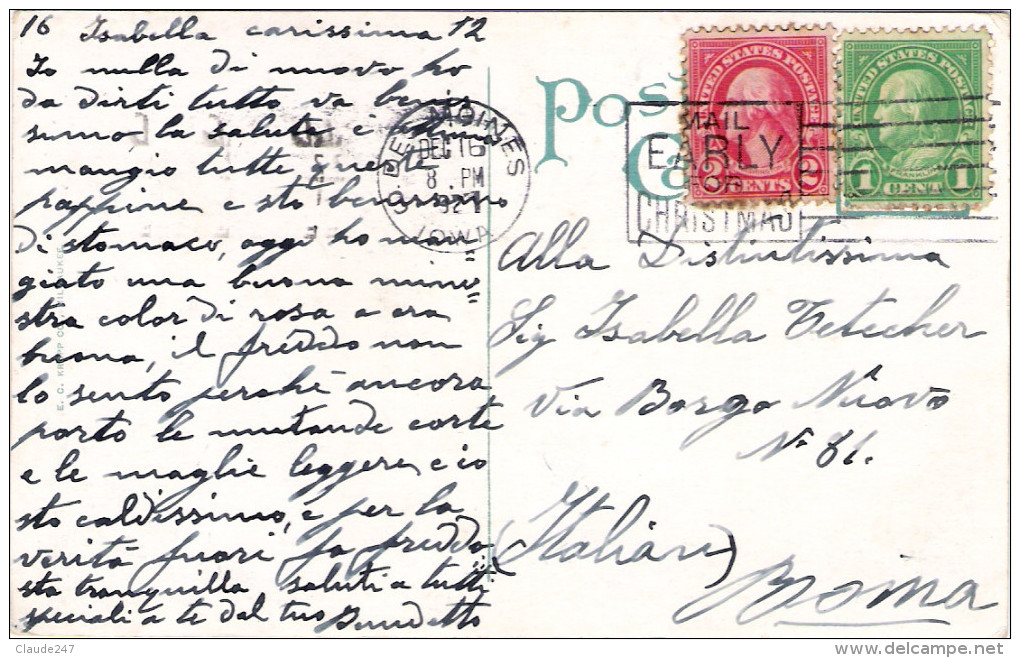 16 Isabella carissima 12
Io nulla di nuovo ho
da dirti tutto va benis
simo, la salute è ottima
mangio tutte queste
pappine e sto benissimo
di stomaco, oggi ho man=
giato una buona mine=
stra color di rosa a era
buona, il freddo non
lo sento perché ancora
porto le mutande corte
e le maglie leggere, e io
sto caldissimo, e per la
verità fuori fa freddo
sta tranquilla saluti a tutti
speciali a te dal tuo Benedetto
E. C. KROPP CO. MILWAUKEE
Post
Ca
DES MOINES
DEC 16
8 PM
IOWA
MAIL
EARLY
FOR
CHRISTMAS
UNITED STATES POSTAGE
2 CENTS 2
UNITED STATES POSTAGE
FRANKLIN
1 CENT 1
Alla Distintissima
Sig Isabella Tetecher
Via Borgo Nuovo
N. 81.
(Italian)
Roma
Claude247
www.delcampe.net